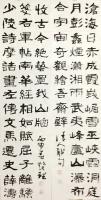 滄海日赤城霞峨嵋雪巫峽雲洞庭
月彭蠡煙瀟湘雨廣陵潮廬山瀑布
合宇宙奇觀繪吾齋壁
少陵詩摩詰畫左傳文馬遷史薛濤
箋右軍帖南華經相如賦屈子離騷
收古今絕藝置我山窗